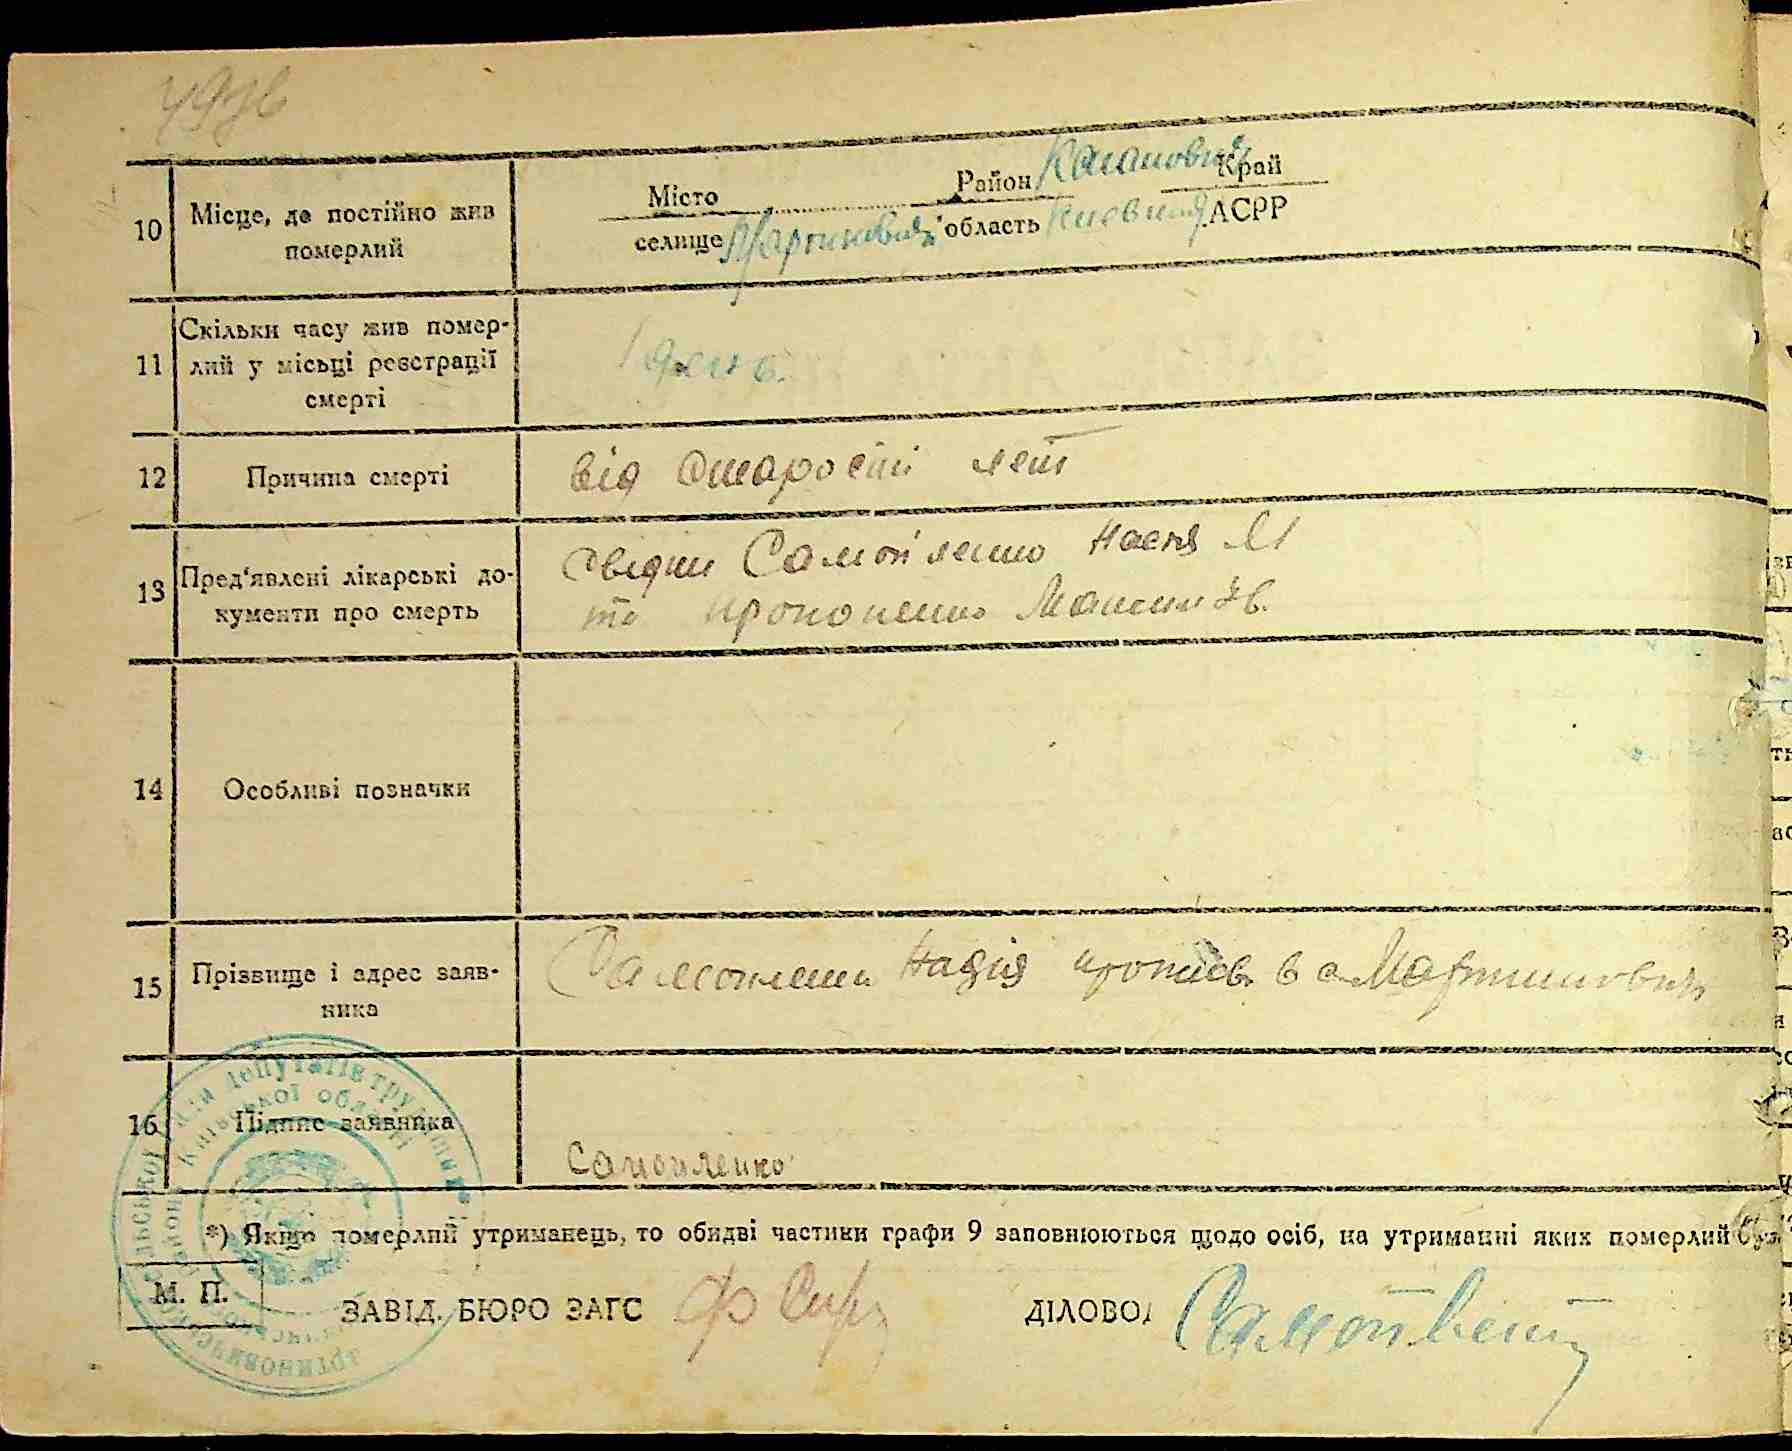 10 Місце, де постійно жив померлий
Місто Район Каганович Край
селище Мартиновичі область Київська АСРР
11 Скільки часу жив помер-
лий у місьці реєстрації
смерті
1 день.
12 Причина смерті
від старости лет
13 Пред'явлені лікарські до-
кументи про смерть
Свідки Самойленко Настя
та Прокопенко Максим Ів.
14 Особливі позначки
15 Прізвище і адрес заяв-
ника
Самойленко Надія в с Мартиновичі
16 Підпис заявника
Самойленко
*) Якщо померлий утриманець, то обидві частини графи 9 заповнюються щодо осіб, на утриманні яких померлий
М. П.
ЗАВІД. БЮРО ЗАГС
ДІЛОВОД Самойленко
депутатів трудящих
Київської області